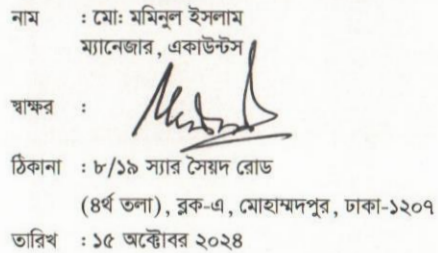 নাম : মোঃ মমিনুল ইসলাম
ম্যানেজার, একাউন্টস
স্বাক্ষর :
ঠিকানা : ৮/১৯ স্যার সৈয়দ রোড
(৪র্থ তলা), ব্লক-এ, মোহাম্মদপুর, ঢাকা-১২০৭
তারিখ : ১৫ অক্টোবর ২০২৪